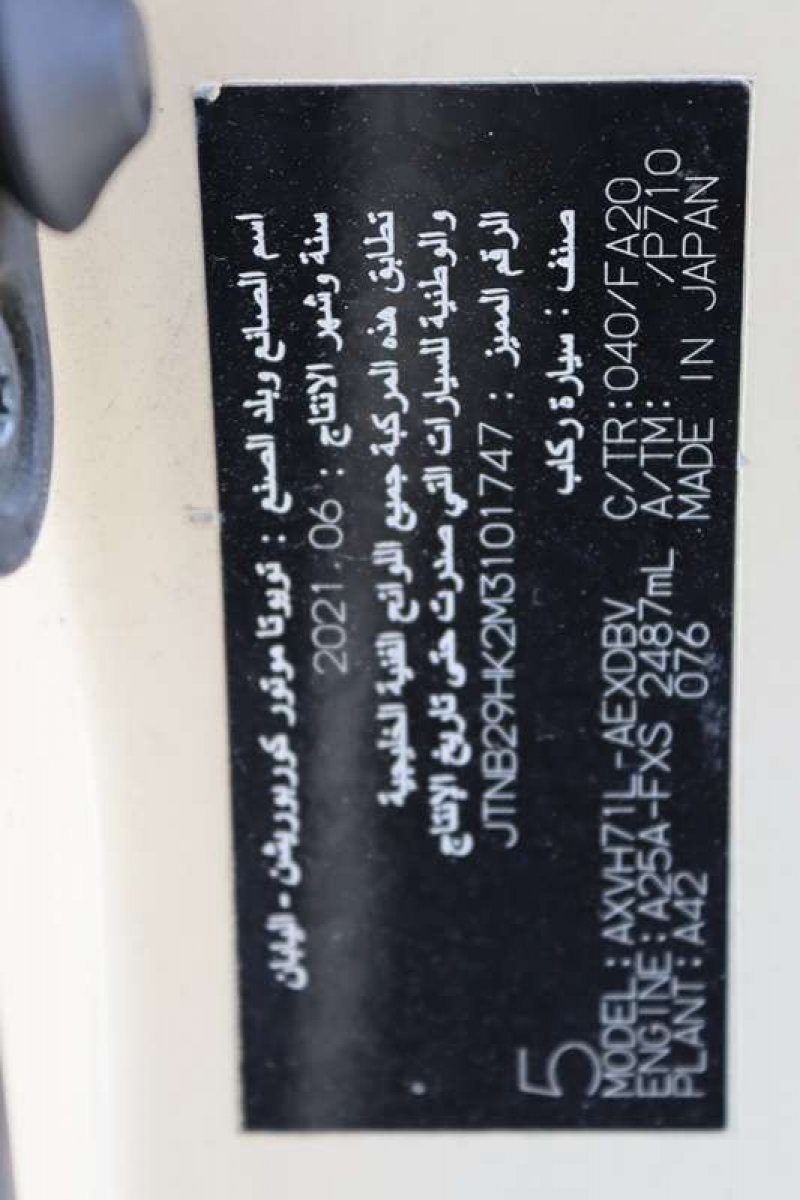 اسم الصانع وبلد الصنع : تويوتا موتور كوربوريشن - اليابان
سنة وشهر الانتاج : 2021.06
تطابق هذه المركبة جميع اللوائح الفنية الخليجية
والوطنية للسيارات التي صدرت حتى تاريخ الإنتاج
الرقم المميز : JTNB29HK2M3101747
صنف : سيارة ركاب
5
MODEL:AXVH71L-AEXDBV C/TR:040/FA20
ENGINE:A25A-FXS 2487mL A/TM: /P710
PLANT:A42 076 MADE IN JAPAN